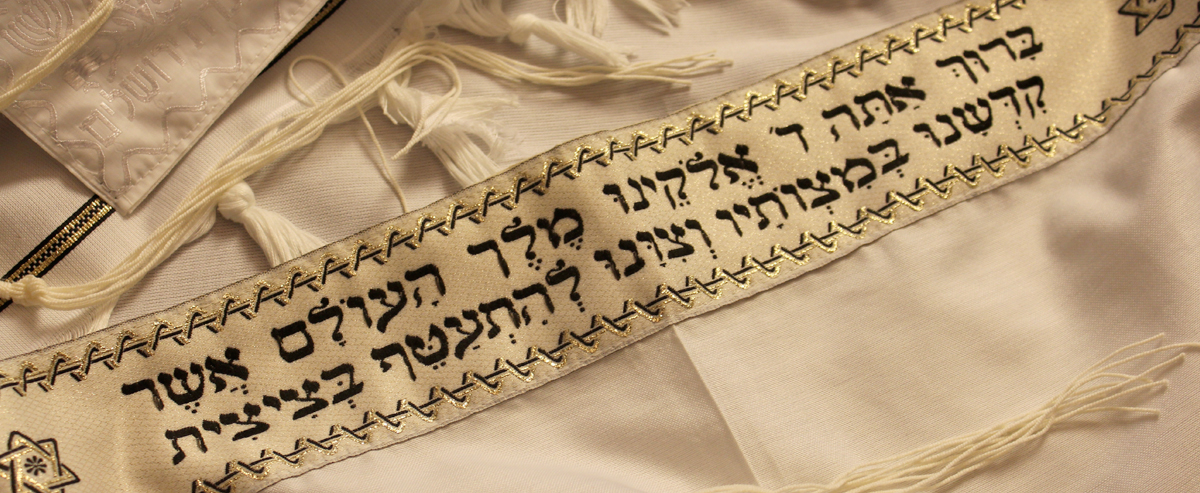 בָּרוּךְ אַתָּה ד' אֱלֹקֵינוּ מֶלֶךְ הָעוֹלָם אֲשֶׁר
קִדְּשָׁנוּ בְּמִצְוֹתָיו וְצִוָּנוּ לְהִתְעַטֵּף בְּצִיצִית